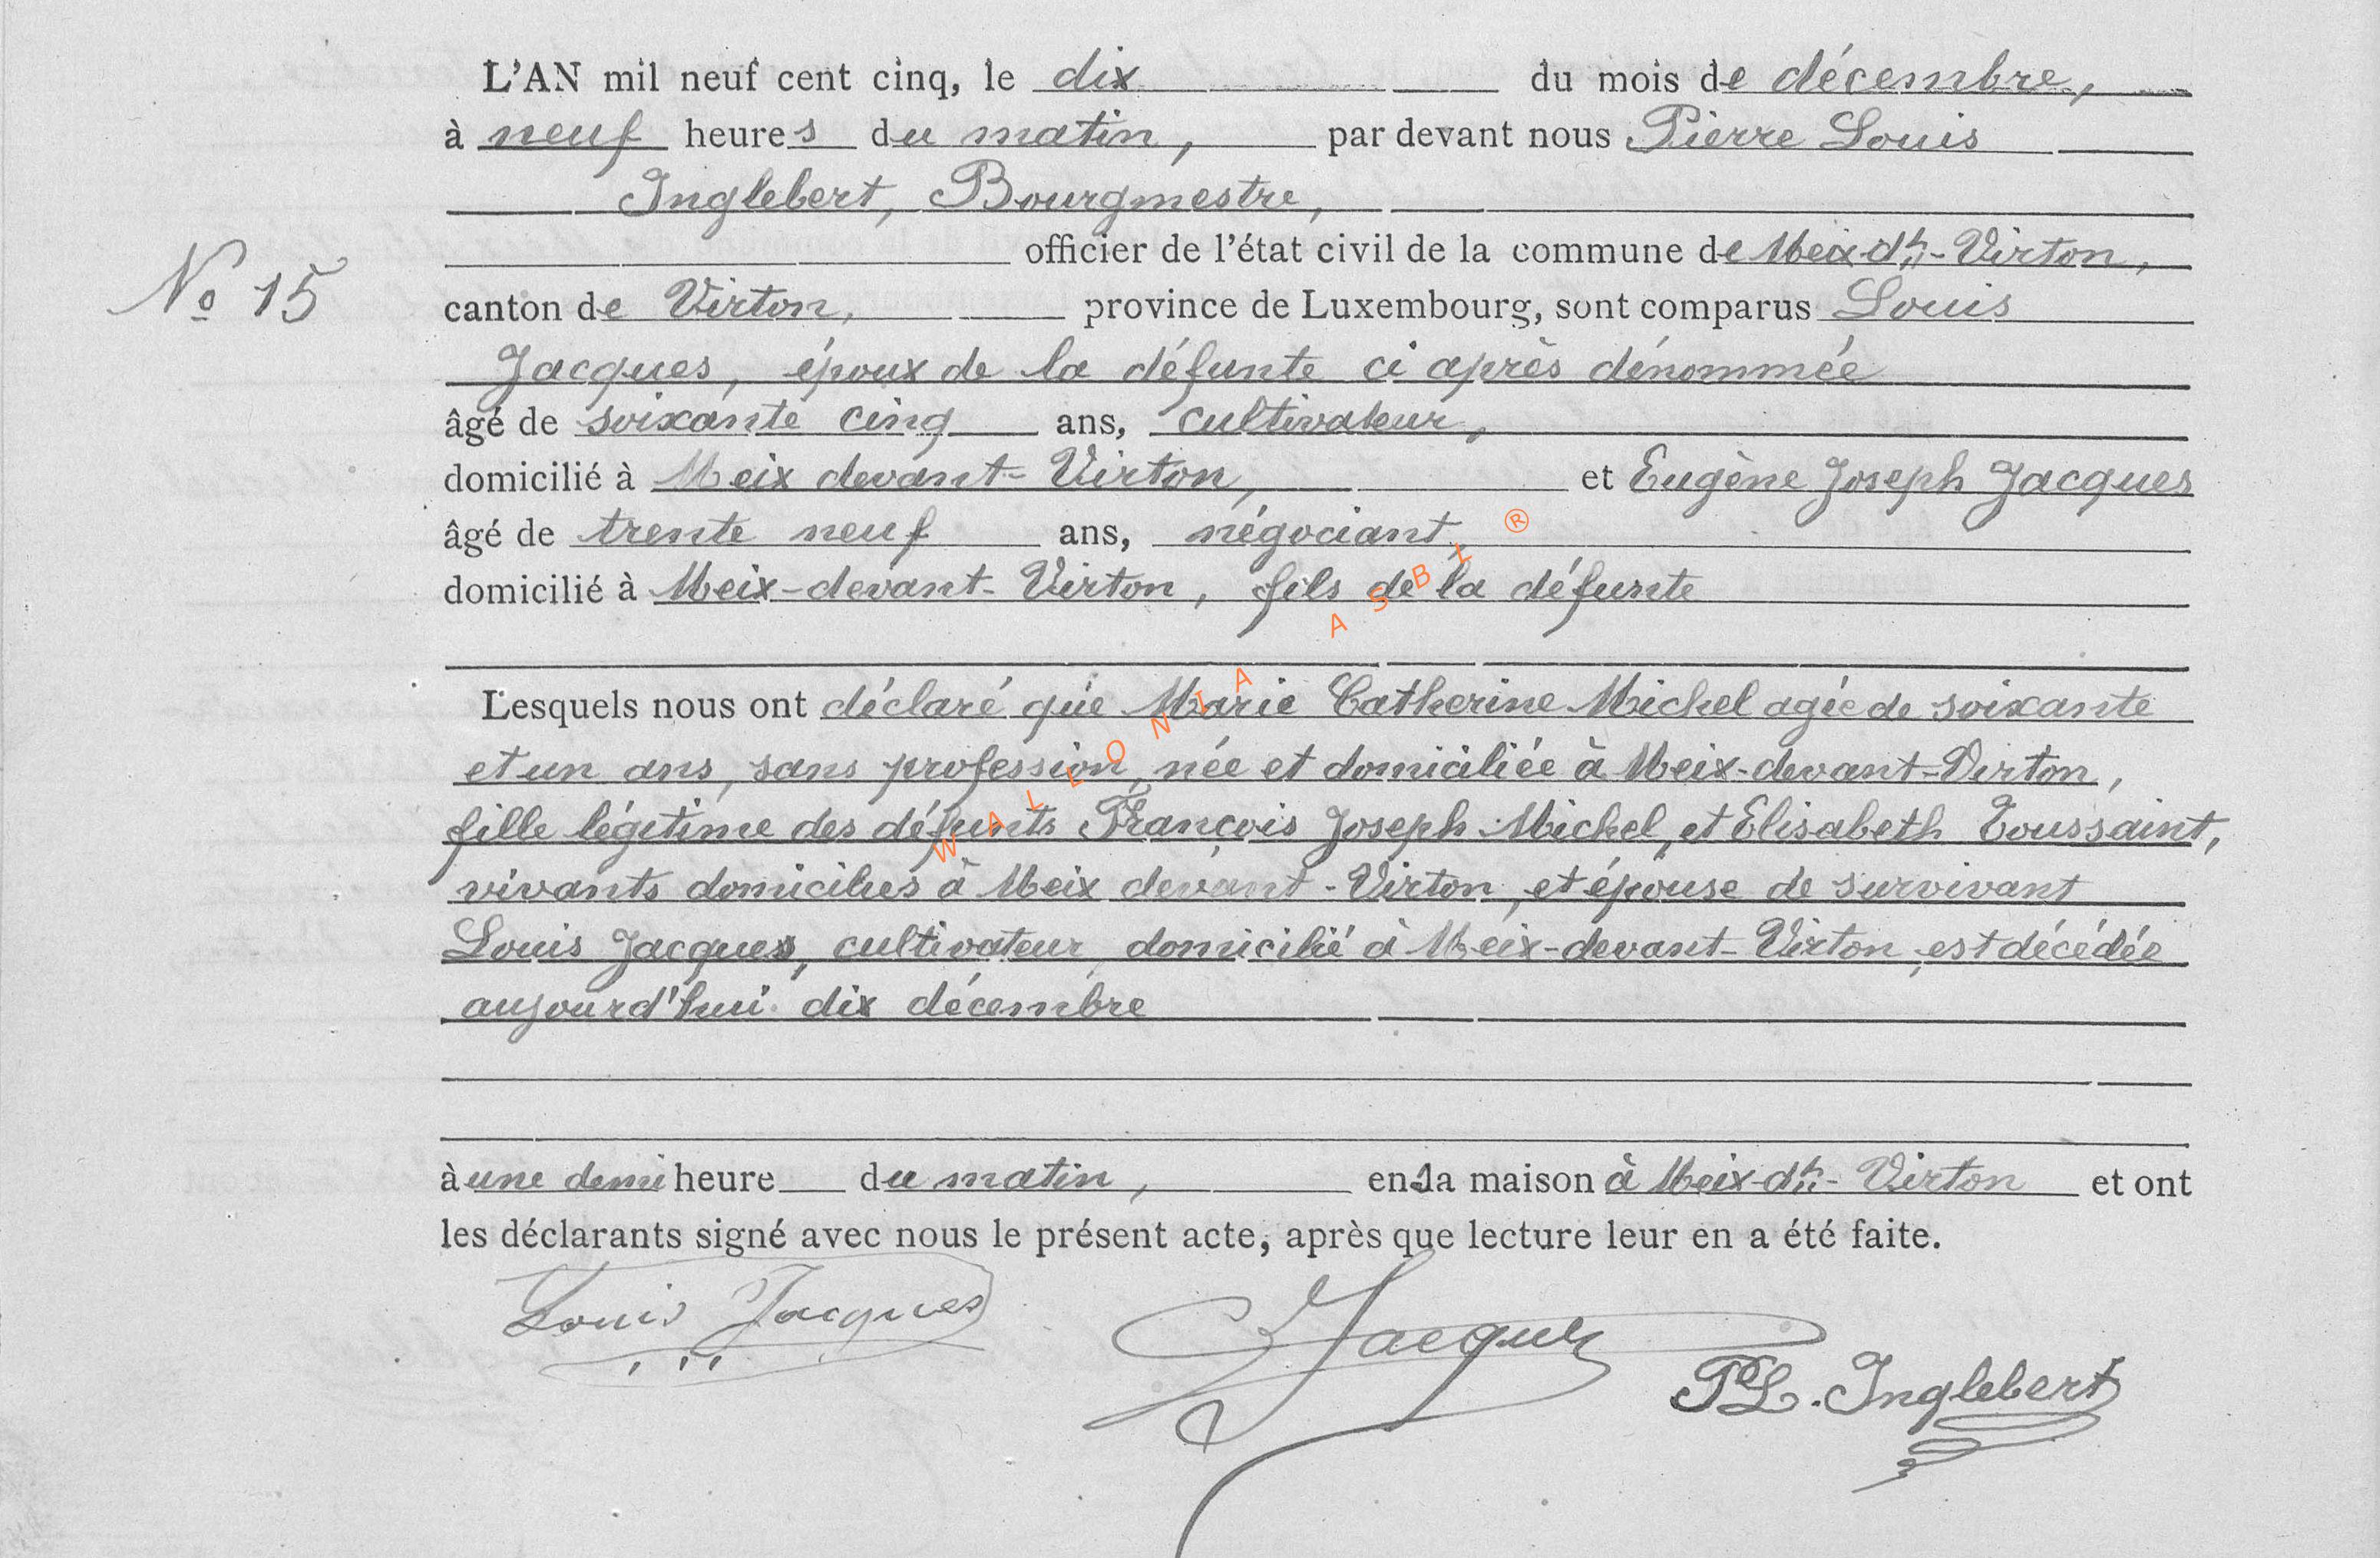 L'AN mil neuf cent cinq, le dix du mois de décembre,
à neuf heures du matin, par devant nous Pierre Louis
Inglebert, Bourgmestre,
officier de l'état civil de la commune de Meix-dt-Virton,
N° 15
canton de Virton, province de Luxembourg, sont comparus Louis
Jacques, époux de la défunte ci après dénommée
âgé de soixante cinq ans, cultivateur,
domicilié à Meix devant-Virton, et Eugène Joseph Jacques
âgé de trente neuf ans, négociant,
domicilié à Meix-devant-Virton, fils de la défunte
WALLONIA ASBL ®
Lesquels nous ont déclaré que Marie Catherine Michel agée de soixante
et un ans, sans profession, née et domiciliée à Meix-devant-Virton,
fille légitime des défunts François Joseph Michel, et Elisabeth Toussaint,
vivants domiciliés à Meix devant-Virton, et épouse de survivant
Louis Jacques, cultivateur, domicilié à Meix-devant-Virton, est décédée
aujourd'hui dix décembre
à une demi heure du matin, en sa maison à Meix-dt-Virton et ont
les déclarants signé avec nous le présent acte, après que lecture leur en a été faite.
Louis Jacques
Jacques
PL. Inglebert